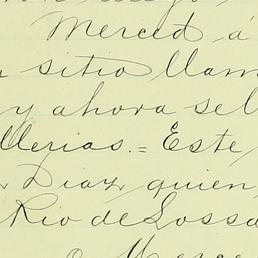 Merced á
sitio llam
y ahora se ll
llerias.= Este
Diaz quien,
Rio de Lossa
Merce